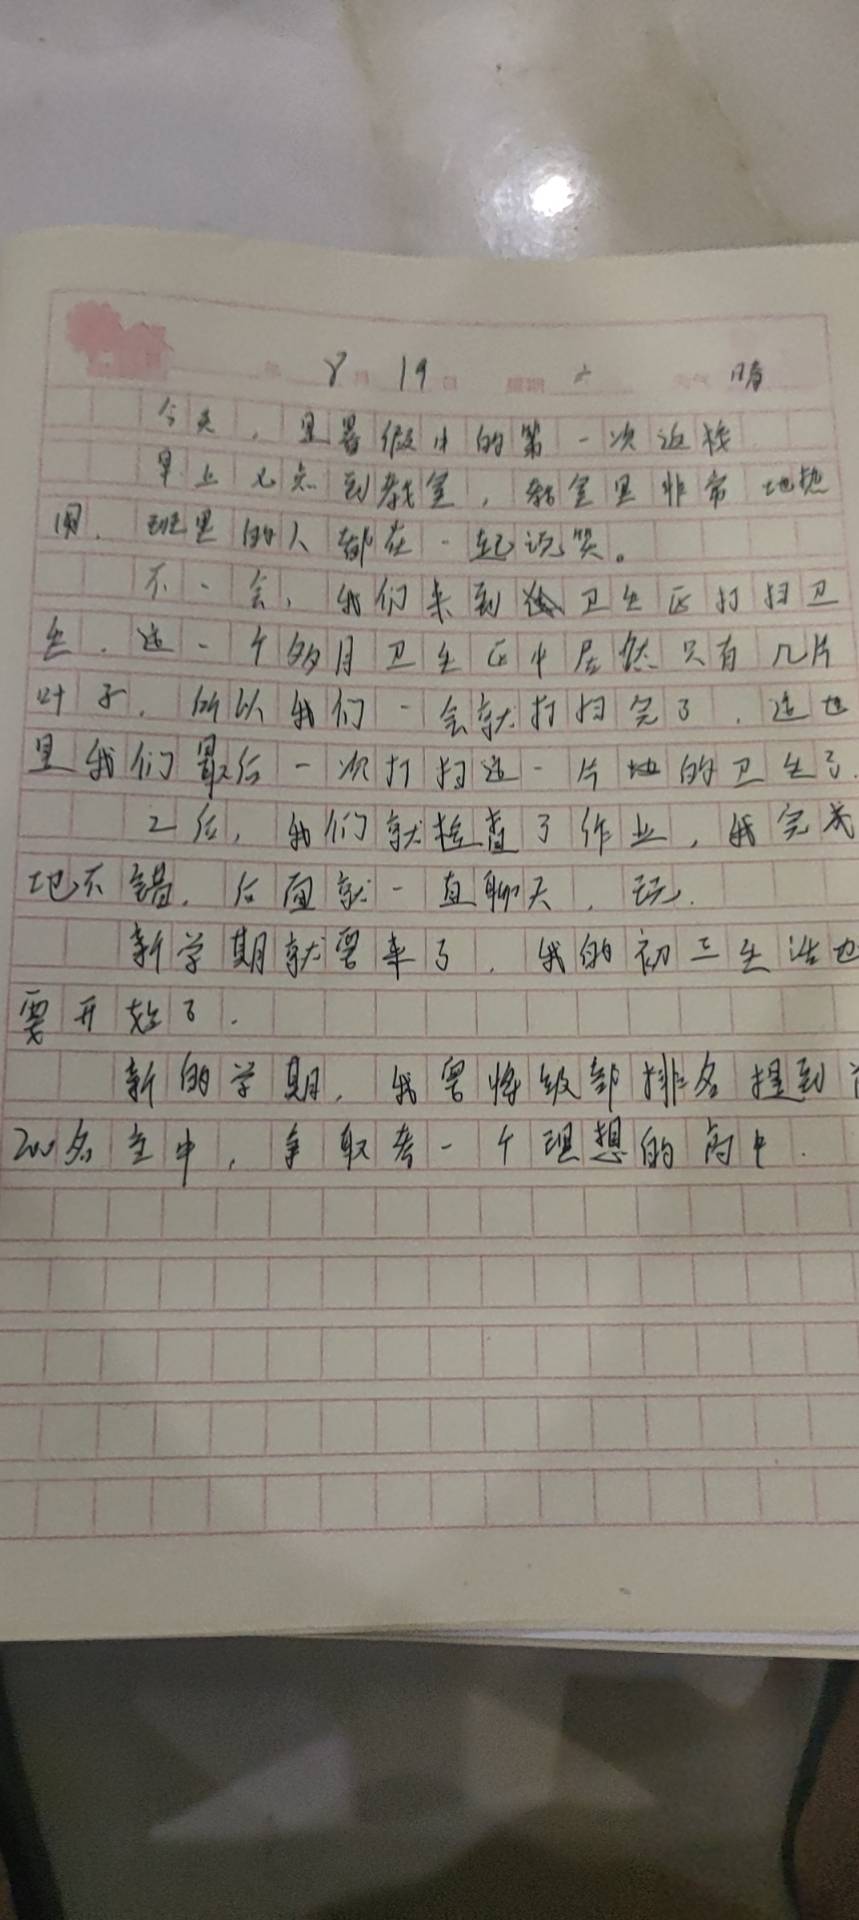 年 8月 19日 星期 六 天气 晴
今天，是暑假中的第一次返校
早上七点到教室，教室里非常地热
闹，班里的人都在一起说笑。
不一会，我们来到卫生区打扫卫
生，这一个多月卫生区中居然只有几片
叶子，所以我们一会就打扫完了，这也
是我们最后一次打扫这一片地的卫生了.
之后，我们就检查了作业，我完成
地不错，后面就一直聊天，玩.
新学期就要来了，我的初三生活也
要开始了.
新的学期，我要将级部排名提到前
200名之中，争取考一个理想的高中.